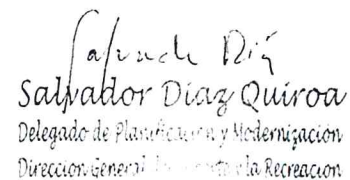 Salvador Díaz Quiroa
Delegado de Planificación y Modernización
Dirección General la Recreación